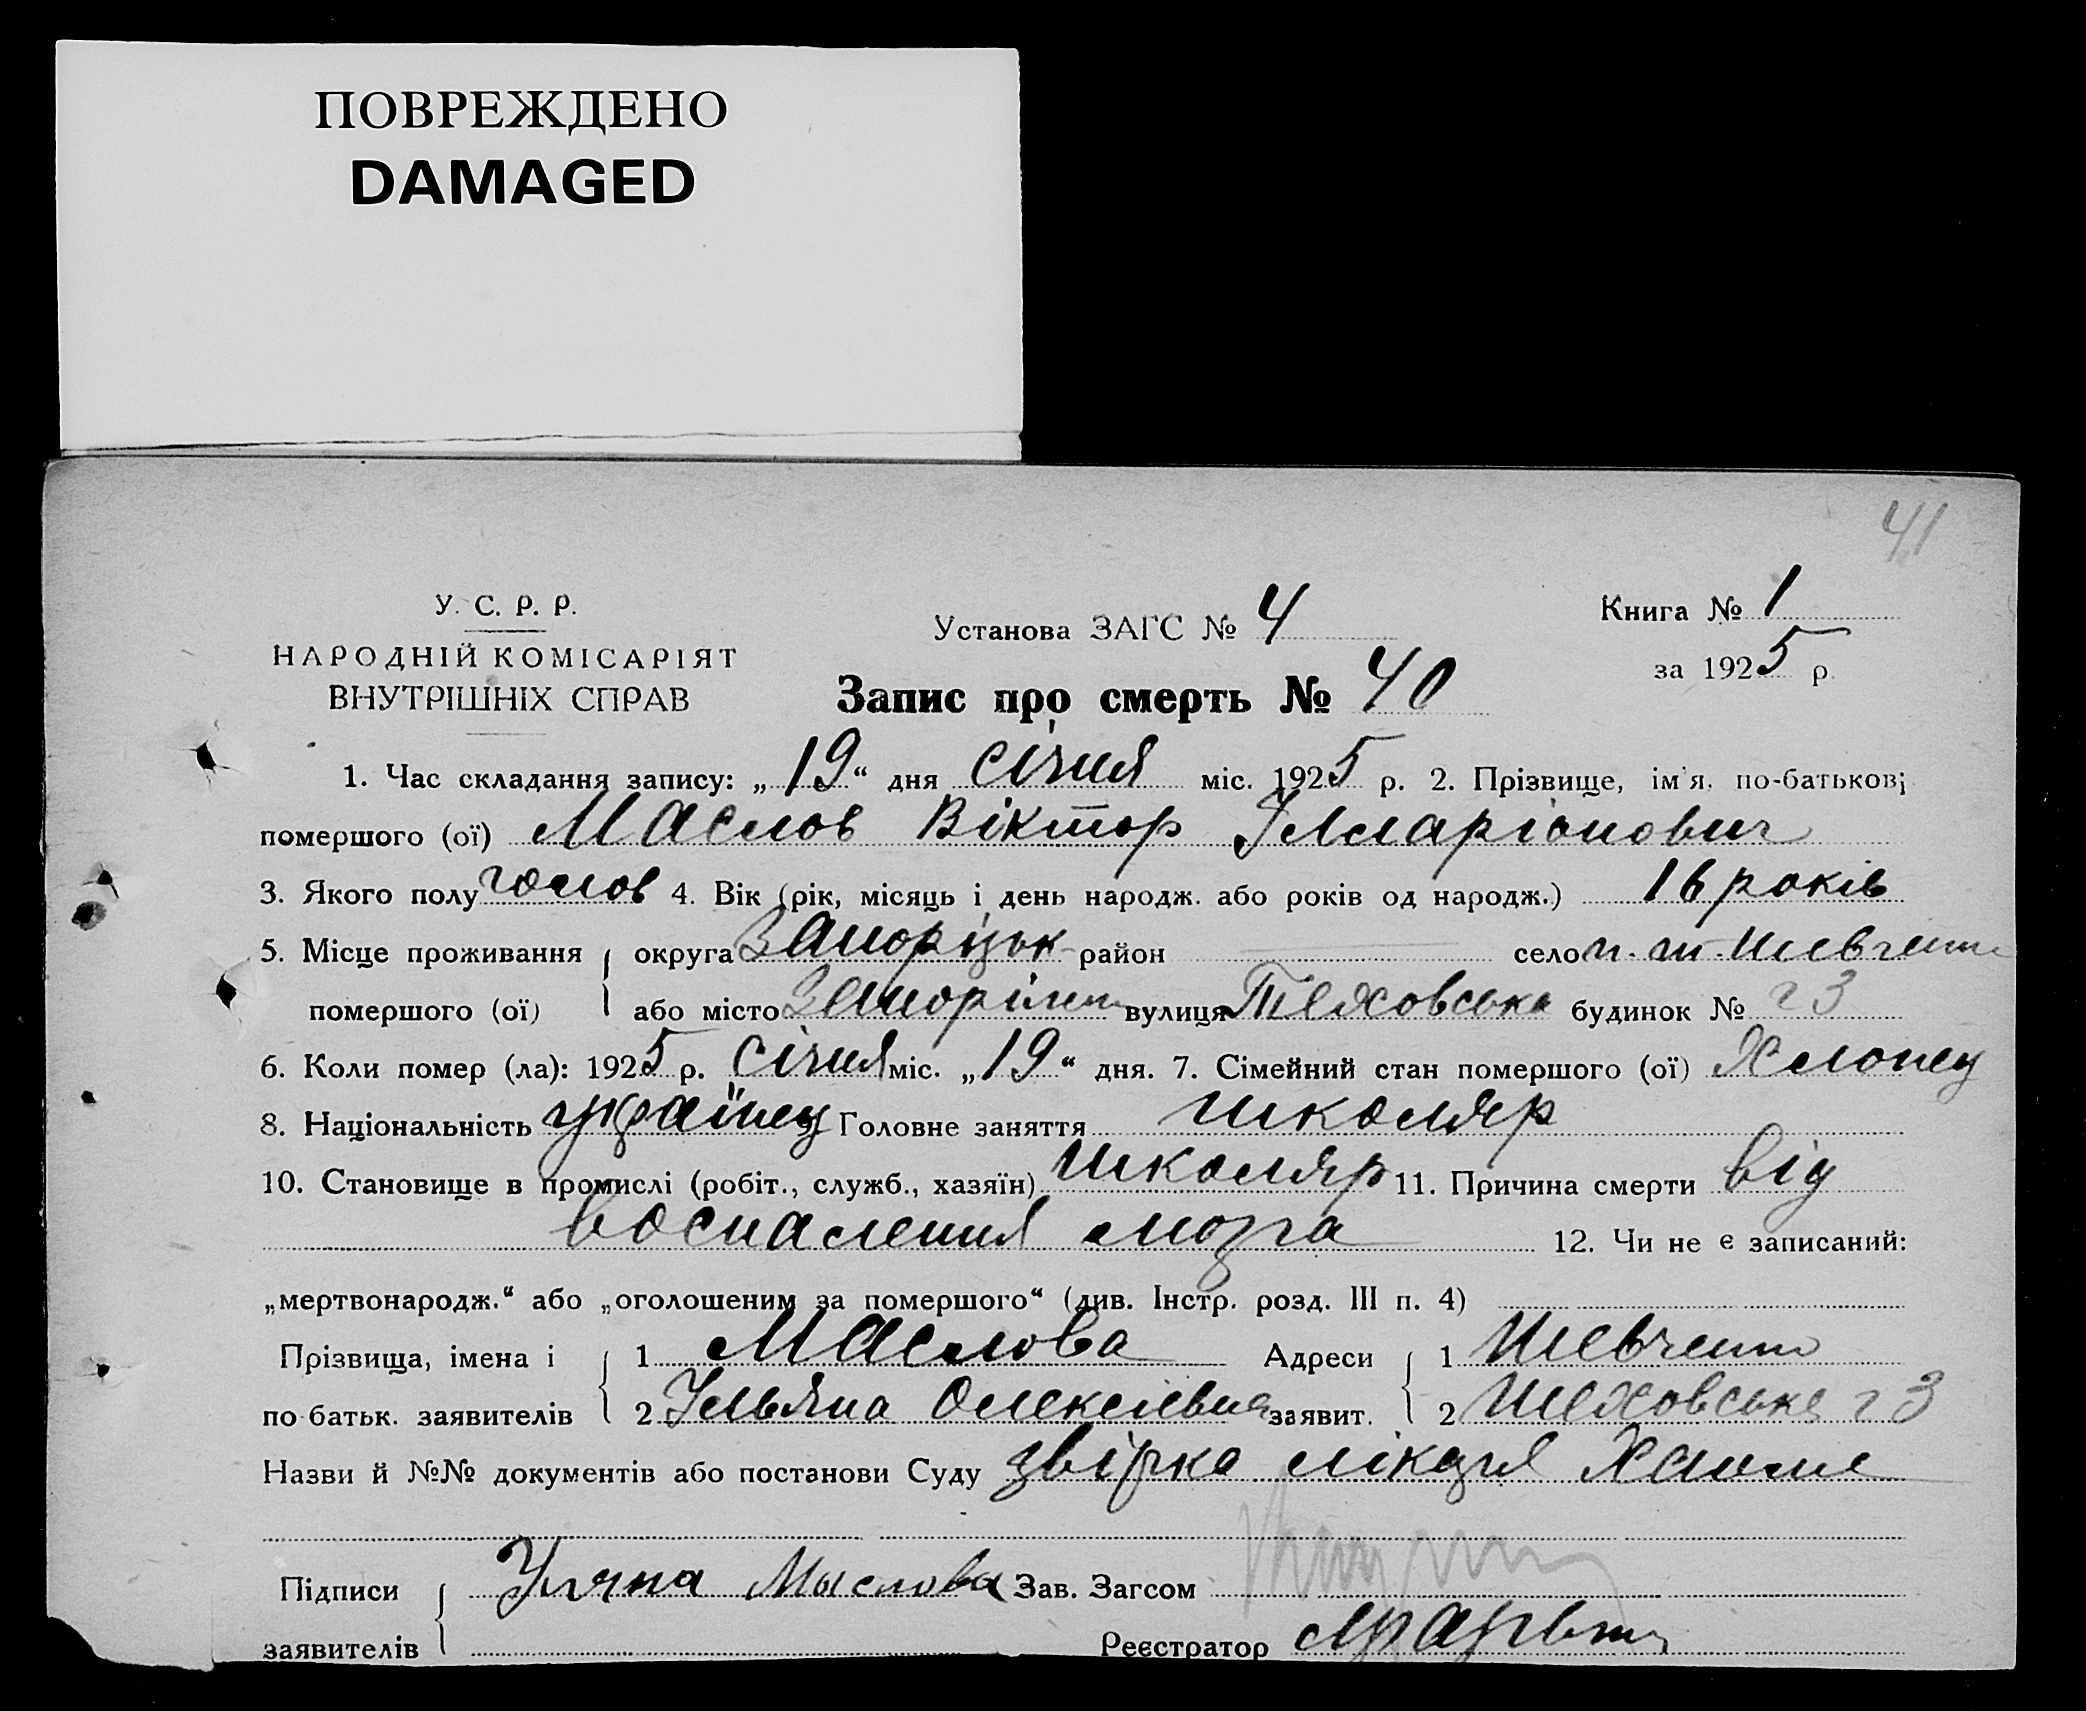 ПОВРЕЖДЕНО
DAMAGED
41
У. С. Р. Р.
НАРОДНІЙ КОМІСАРІЯТ
ВНУТРІШНІХ СПРАВ
Установа ЗАГС № 4
Книга № 1
за 1925 р.
Запис про смерть № 40
1. Час складання запису: „19“ дня січня міс. 1925 р. 2. Прізвище, ім'я, по-батькові
помершого (ої) Маслов Віктор Ілларіонович
3. Якого полу чолов 4. Вік (рік, місяць і день народж. або років од народж.) 16 років
5. Місце проживання округа Запоріцьк район село
помершого (ої) або місто вулиця будинок №
6. Коли помер (ла): 1925 р. січня міс. „19“ дня. 7. Сімейний стан помершого (ої) Хлопец
8. Національність українец Головне заняття школяр
10. Становище в промислі (робіт., служб., хазяїн) школяр 11. Причина смерти від
воспаления мозга 12. Чи не є записаний:
„мертвонародж.“ або „оголошеним за помершого“ (див. Інстр. розд. III п. 4)
Прізвища, імена і 1 Маслова Адреси 1
по батьк. заявителів 2 Ульяна Олексіевна заявит. 2
Назви й №№ документів або постанови Суду лікаря
Підписи Уляна Зав. Загсом
заявителів Реєстратор